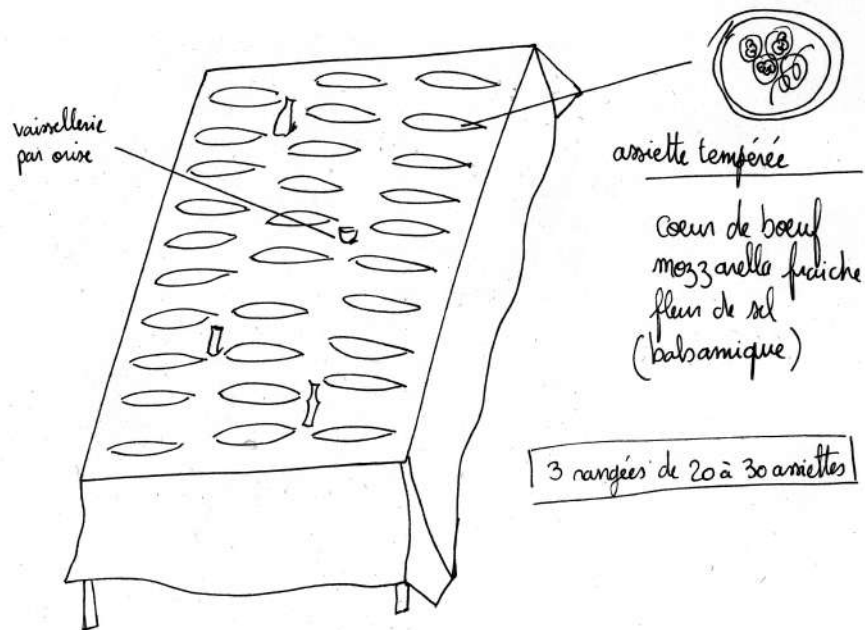 vaissellerie
par orise
assiette tempérée
coeur de boeuf
mozzarella fraiche
fleur de sel
(balsamique)
3 rangées de 20 à 30 assiettes